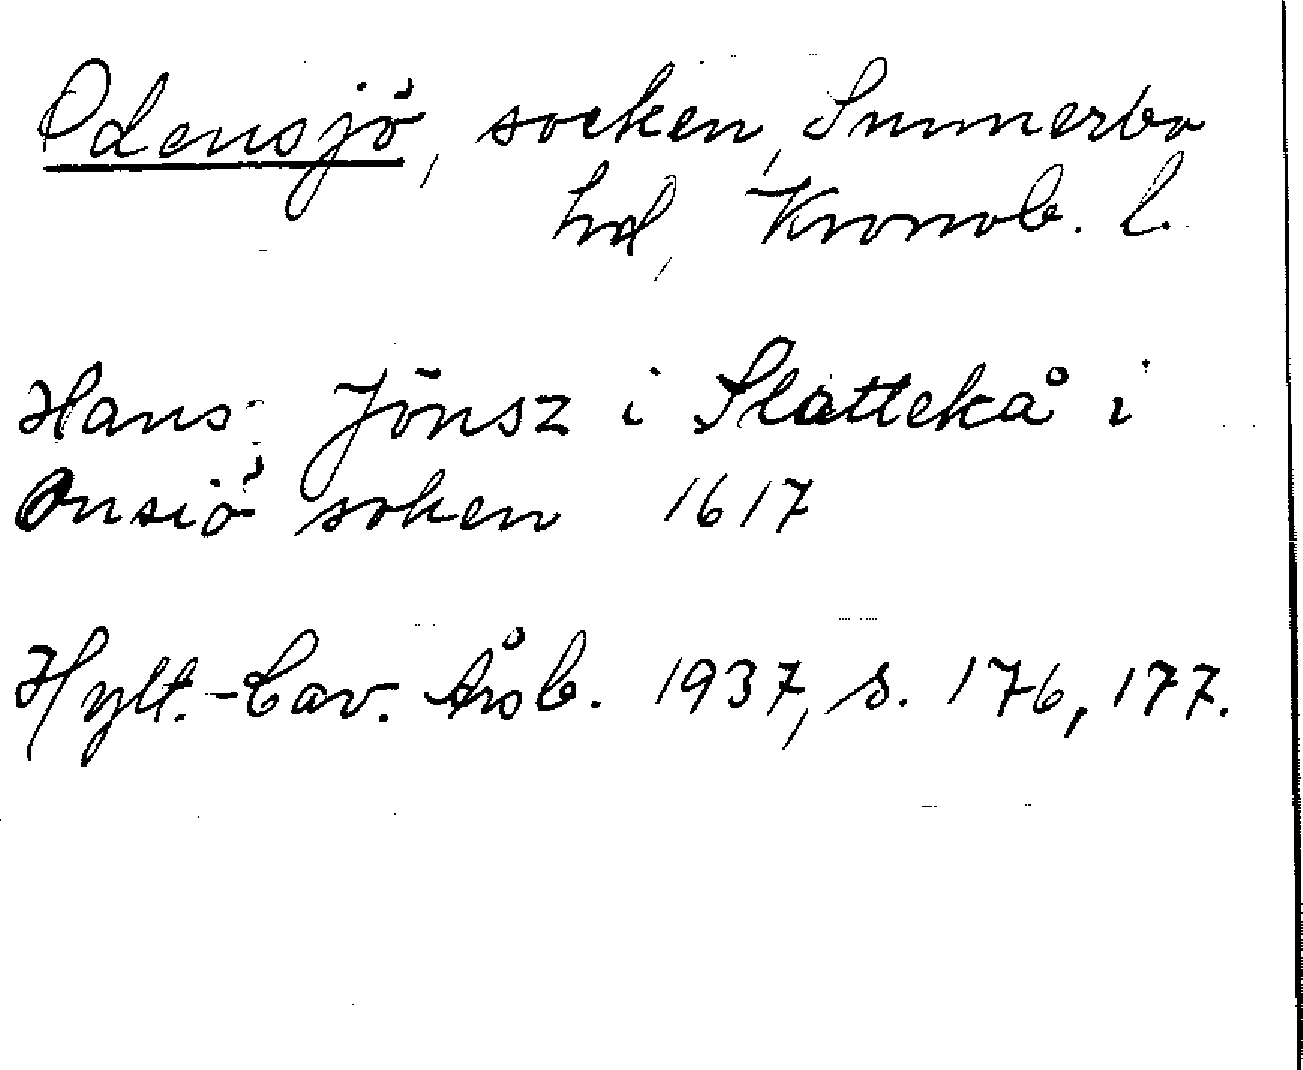 Odensjö, socken, Sunnerbo
hd, Kronob. l.
Hans Jönsz i Slättekå i
Onsiö soken 1617
Hylt.-Cav. Årsb. 1937, s. 176, 177.